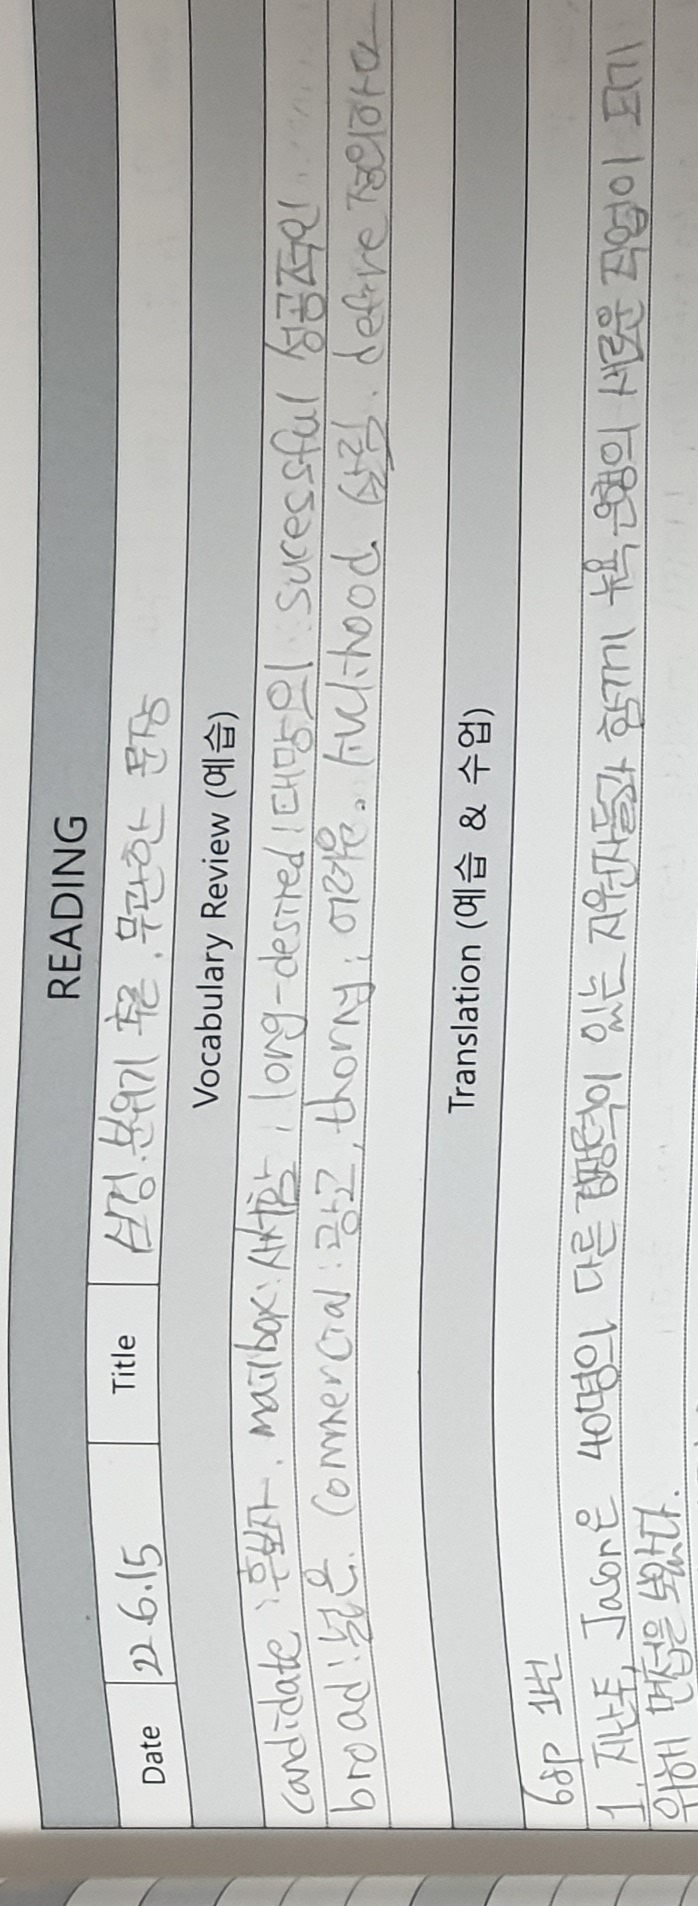 READING
Date 22.6.15 Title 심경.분위기 추론, 무관한 문장
Vocabulary Review (예습)
candidate : 후보자. mailbox : 사서함, long-desired : 대망의. sucessful 성공적인
broad : 넓은. Commercial : 광고, thorny : 어려운. livelihood 살림. define 정의하다
Translation (예습 & 수업)
68p 1번
1. 지난주, Jason은 40명의 다른 경쟁력이 있는 지원자들과 함께 뉴욕은행의 새로운 직업이 되기
위해 면접을 보았다.